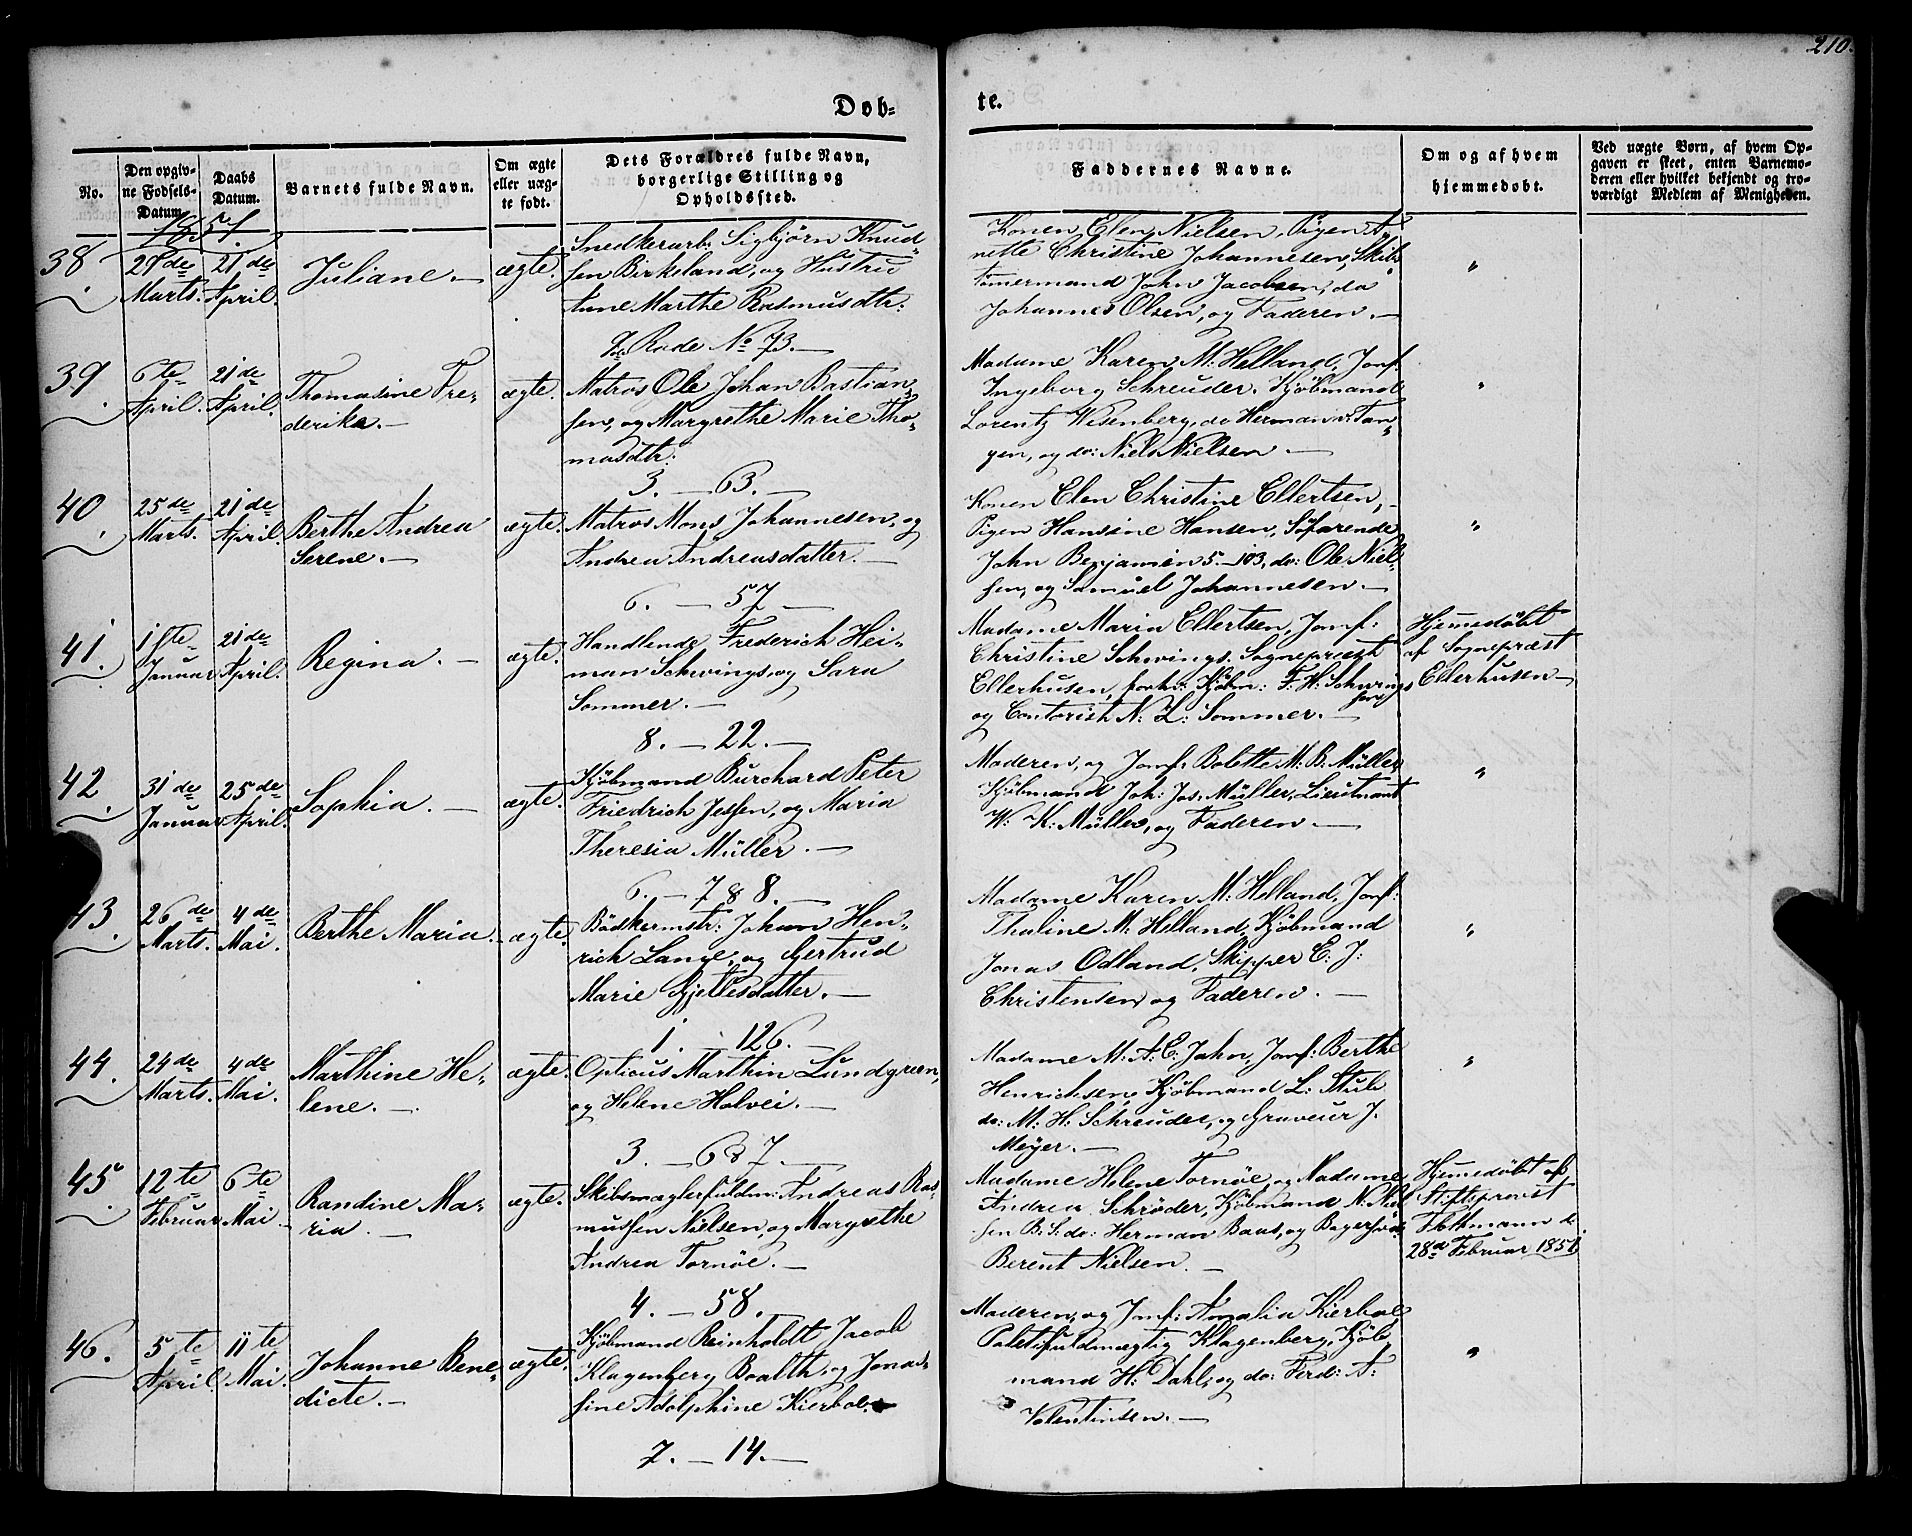 210.
Döb-
te.
No.
Den opgiv-
ne Fødsels-
Datum.
Daabs
Datum.
Barnets fulde Navn.
Om ægte
eller uæg-
te født.
Dets Forældres fulde Navn,
borgerlige Stilling og
Opholdssted.
Faddernes Navne.
Om og af hvem
hjemmedøbt.
Ved uægte Børn, af hvem Op-
gaven er skeet, enten Barnemo-
deren eller hvilket bekjendt og tro-
værdigt Medlem af Menigheden.
1851.
38.
21de
Marts.
21de
April
Juliane. —
ægte.
Snedkerarb: Sigbjörn Knud-
sen Birkeland, og Hustrue
Anne Marthe Rasmusdtr:
Rode No 73. —
Konen Elen Nielsen, Pigen A-
nette Christine Johannesen, Skibs
tømermand John Jacobsen, do
Johannes Olsen, og Faderen. —
"
39.
6te
April.
21de
April.
Thomasine Fre-
derike. —
ægte.
Matros Ole Johan Bastian-
sen, og Margrethe Marie Tho-
masdtr:
3. — 63. —
Madame Karen M: Helland, Jomf:
Ingeborg Schreuder, Kjøbmand
Lorentz Wesenberg, do Herman v: Tan-
gen, og do: Niels Nielsen —
"
40.
25de
Marts.
21de
April.
Berthe Andrea
Serene. —
ægte.
Matros Mons Johannesen, og
Andrea Andreasdatter. —
6. — 57 —
Konen Elen Christine Ellertsen, —
Pigen Hansine Hansen, Søfarende
John Benjamin 5.—103, do: Ole Niel-
sen, og Samuel Johannesen —
"
41.
1ste
Januar
21de
April.
Regina. —
ægte.
Handlende Frederich Hei-
man Schwings, og Sara
Sommer. —
8. — 22. —
Madame Maria Ellertsen, Jomf:
Christine Schwings, Sogneprest
Ellerhusen, forhv: Kjøbm: F: H: Schwings
og Contorist N: L: Sommer. —
Hjemedøbt
af Sogneprest
Ellerhusen —
42.
31de
Januar
25de
April.
Sophia. —
ægte.
Kjøbmand Burchard Peter
Friedrich Jessen, og Maria
Theresia Müller. —
6. — 7 & 8. —
Moderen, og Jomf: Bolette M. B. Müller,
Kjøbmand Joh: Jos: Müller, Lieutnant
W: K: Müller, og Faderen —
"
43.
26de
Marts.
4de
Mai.
Berthe Maria. —
ægte.
Bødkermstr: Johan Hen-
rich Lange, og Gertrud
Marie Gjellesdatter. —
1. — 126. —
Madame Karen M: Helland, Jomf:
Thaline M: Helland, Kjøbmand
Jonas Odland, Skipper E: J:
Christensen og Faderen. —
"
44.
24de
Marts.
4de
Mai.
Marthine He-
lene. —
ægte.
Opticus Marthin Lundgreen,
og Helene Holvei. —
3. — 6 & 7. —
Madame M: A: C: Jahn, Jomf: Berthe
Henrichsen, Kjøbmand L: Stub
do: M: H: Schreuder, og Graveur J.
Meyer. —
"
45.
12te
Februar
6te
Mai —
Randine Ma-
ria. —
ægte.
Skibsmæglerfuldm: Andreas Ras-
mussen Nielsen, og Margrethe
Andrea Tornöe. —
4. — 58. —
Madame Helene Tornöe, og Madame
Andrea Schröder, Kjøbmand N: Niel-
sen B. S. do: Herman Baas, og Bagersvd:
Berent Nielsen. —
Hjemedøbt af
Stiftsprovst
d:
28de Februar 1851
46.
5te
April
11te
Mai.
Johanne Bene-
dicte. —
ægte.
Kjøbmand Reinholdt Jacob
Klagenberg Boalth, og Jona-
sine Adolphine Kierbol.
7. — 14. —
Moderen, og Jomf: Amalia Kierbol
Politifuldmægtig Klagenberg, Kjøb-
mand H: Dahl, og do: Ferd: A:
Valentinsen. —
"